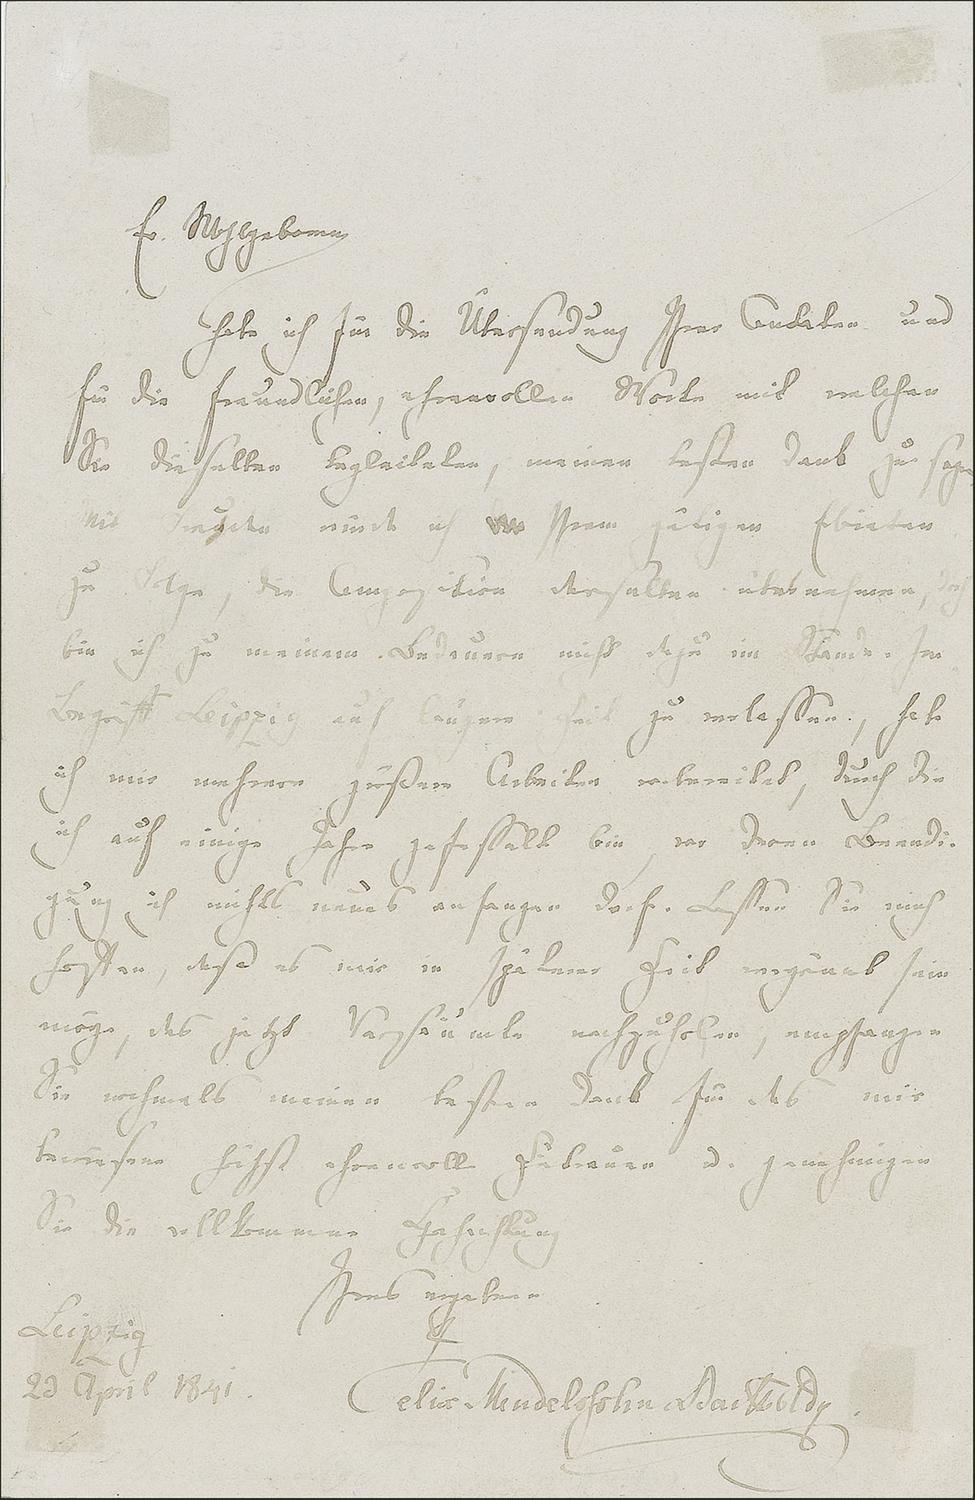 Ew. Wohlgeboren
habe ich für die Übersendung Ihrer Cantaten und
für die freundlichen, ehrenvollen Worte mit welchen
Sie dieselben begleiteten, meinen besten Dank zu sagen
Mit Freuden würde ich Ihrem gütigen Erbieten
zu Folge, die Composition derselben übernehmen, doch
bin ich zu meinem Bedauern nicht dazu im Stande. Im
Begriff Leipzig auf längere Zeit zu verlassen, habe
ich mir mehrere größere Arbeiten vorbereitet, durch die
ich auf einige Jahre gefesselt bin, vor deren Beendi-
gung ich nichts neues anfangen darf. Lassen Sie mich
hoffen, daß es mir in späterer Zeit vergönnt sein
möge, das jetzt Versäumte nachzuholen, empfangen
Sie nochmals meinen besten Dank für das mir
bewiesene höchst ehrenvolle Zutrauen u. genehmigen
Sie die vollkommene Hochachtung
Ihres ergebenen
Leipzig
23 April 1841.
Felix Mendelssohn Bartholdy